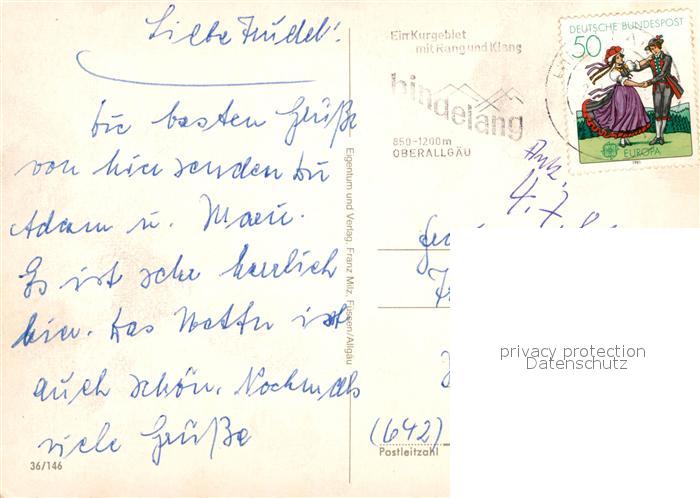 Liebe Trudel!
Die besten Grüße
von hier senden Dir
Adam u.
Es ist sehr herrlich
hier. Das Wetter ist
auch schön. Nochmals
viele Grüße
36/146
Eigentum und Verlag, Franz Milz, Füssen/Allgäu
Ein Kurgebiet
mit Rang und Klang
hindelang
850-1200m
OBERALLGÄU
DEUTSCHE BUNDESPOST
50
EUROPA
1981
Ank.
4.7.
(642)
Postleitzahl
privacy protection
Datenschutz